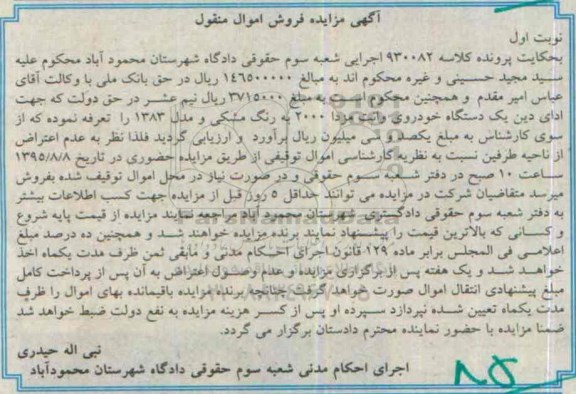 آگهی مزایده فروش اموال منقول
نوبت اول
بحکایت پرونده کلاسه ۹۳۰۰۸۲ اجرایی شعبه سوم حقوقی دادگاه شهرستان محمود آباد محکوم علیه
سید مجید حسینی و غیره محکوم اند به مبالغ ۱۴۶۵۰۰۰۰۰ ریال در حق بانک ملی با وکالت آقای
عباس امیر مقدم و همچنین محکوم است به مبلغ ۳۷۱۵۰۰۰ ریال نیم عشر در حق دولت که جهت
ادای دین یک دستگاه خودروی وانت مزدا ۲۰۰۰ به رنگ مشکی و مدل ۱۳۸۳ را تعرفه نموده که از
سوی کارشناس به مبلغ یکصد و سی میلیون ریال برآورد و ارزیابی گردید فلذا نظر به عدم اعتراض
از ناحیه طرفین نسبت به نظریه کارشناسی اموال توقیفی از طریق مزایده حضوری در تاریخ ۱۳۹۵/۸/۸
ساعت ۱۰ صبح در دفتر شعبه سوم حقوقی و در صورت نیاز در محل اموال توقیف شده بفروش
میرسد متقاضیان شرکت در مزایده می توانند حداقل ۵ روز قبل از مزایده جهت کسب اطلاعات بیشتر
به دفتر شعبه سوم حقوقی دادگستری شهرستان محمود آباد مراجعه نمایند مزایده از قیمت پایه شروع
و کسانی که بالاترین قیمت را پیشنهاد نمایند برنده مزایده خواهند شد و همچنین ده درصد مبلغ
اعلامی فی المجلس برابر ماده ۱۲۹ قانون اجرای احکام مدنی و مابقی ثمن ظرف مدت یکماه اخذ
خواهد شد و یک هفته پس از برگزاری مزایده و عدم وصول اعتراض به آن پس از پرداخت کامل
مبلغ پیشنهادی انتقال اموال صورت خواهد گرفت چنانچه برنده مزایده باقیمانده بهای اموال را ظرف
مدت یکماه تعیین شده نپردازد سپرده او پس از کسر هزینه مزایده به نفع دولت ضبط خواهد شد
ضمنا مزایده با حضور نماینده محترم دادستان برگزار می گردد.
نبی اله حیدری
اجرای احکام مدنی شعبه سوم حقوقی دادگاه شهرستان محمودآباد